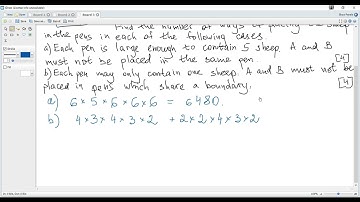 Find the number of ways of placing the sheep
in the pens in each of the following cases.
a) Each pen is large enough to contain 5 sheep. A and B
must not be placed in the same pen. [4]
b) Each pen may only contain one sheep. A and B must not be
placed in pens which share a boundary. [4]
a) 6 × 5 × 6 × 6 × 6 = 6480.
b) 4 × 3 × 4 × 3 × 2 + 2 × 2 × 4 × 3 × 2